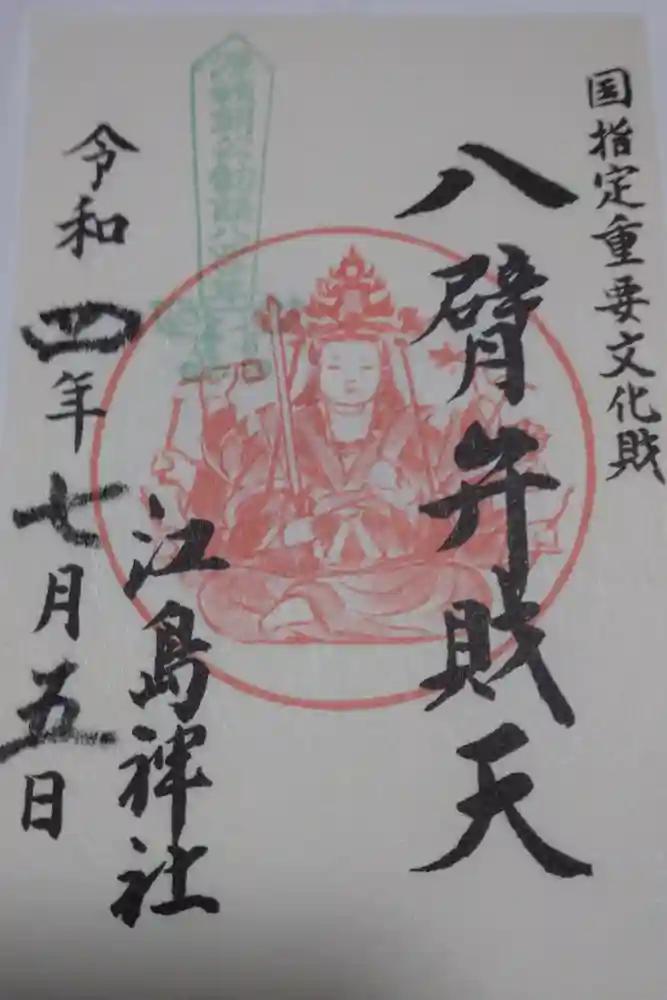 国指定重要文化財
八臂弁財天
江島神社
令和四年七月五日